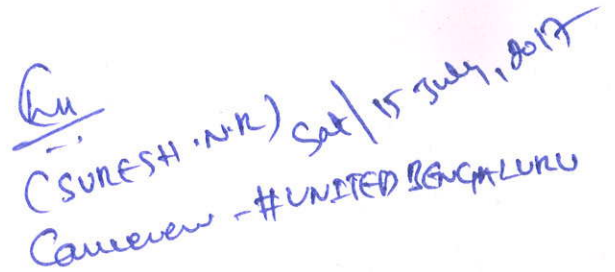 (SURESH.N.R) Sat/15 July, 2017
Convenor - #UNITEDBENGALURU